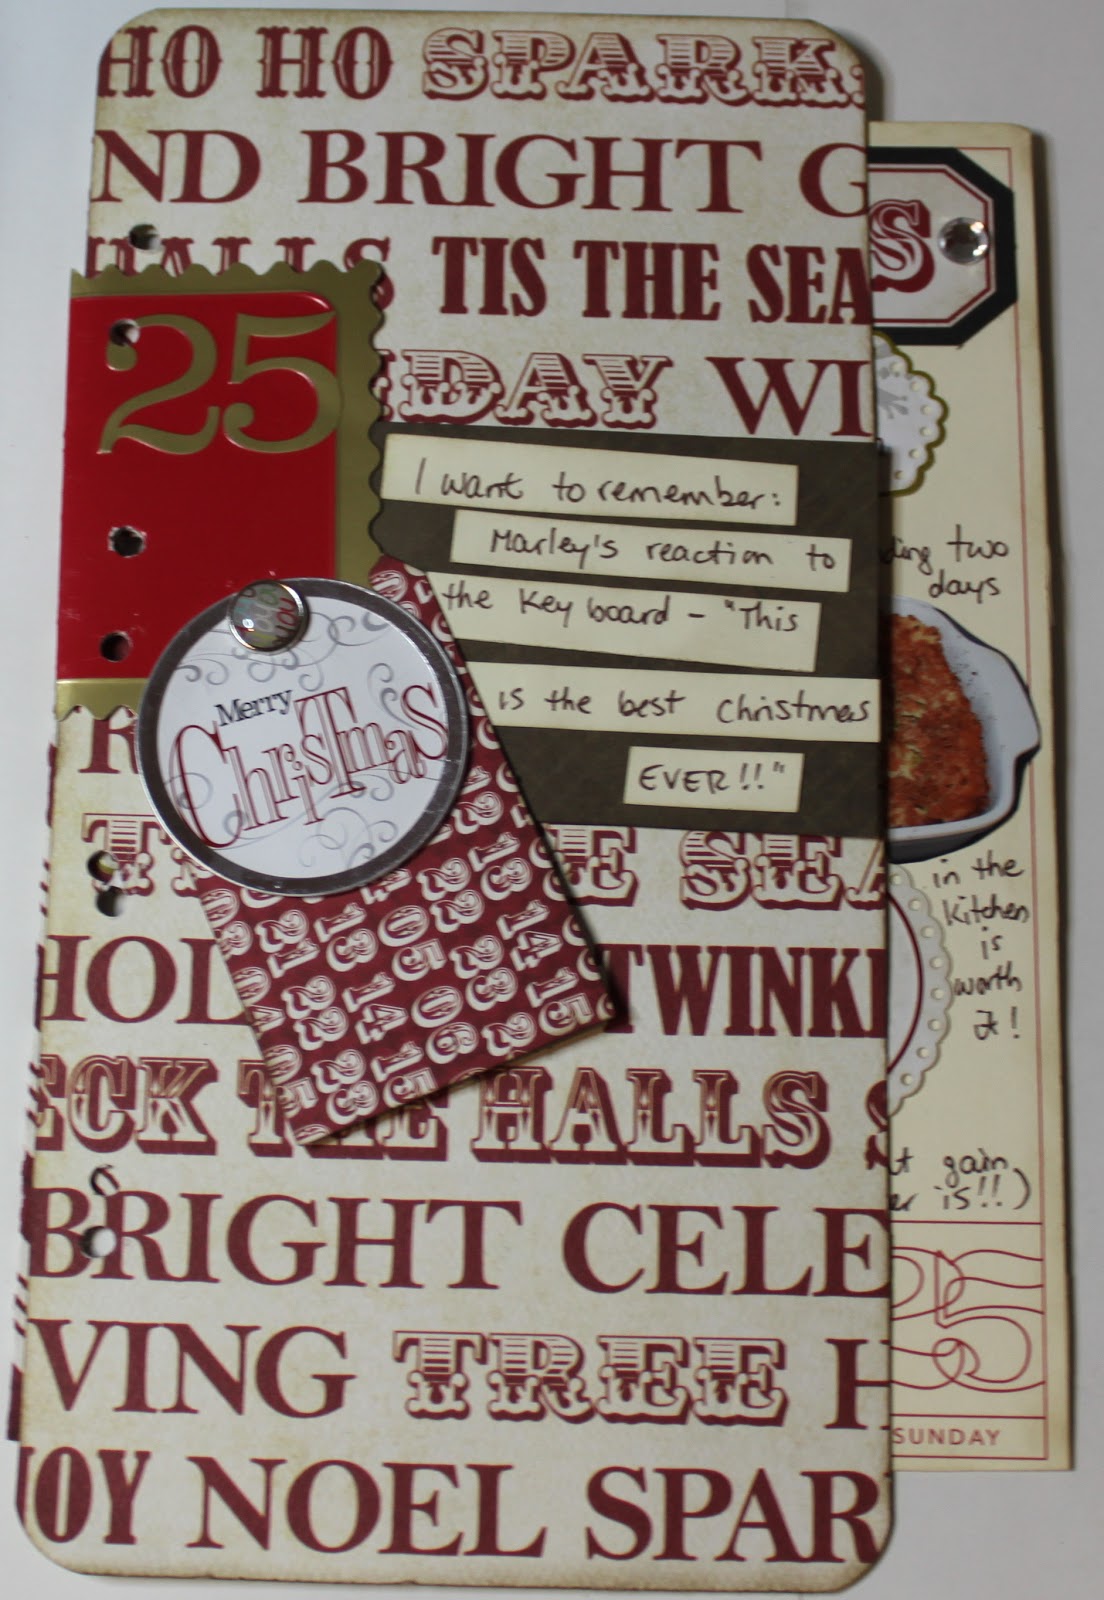 HO HO SPARK
ND BRIGHT G
HALLS TIS THE SEA
S
25
IDAY WI
I want to remember:
Marley's reaction to
the Keyboard - "This
is the best christmas
EVER!!"
Merry
Christmas
two
days
in the
kitchen
is
worth
it!
gain
is!!)
TWINKL
ECK THE HALLS S
BRIGHT CELE
VING TREE H
25
SUNDAY
JOY NOEL SPAR